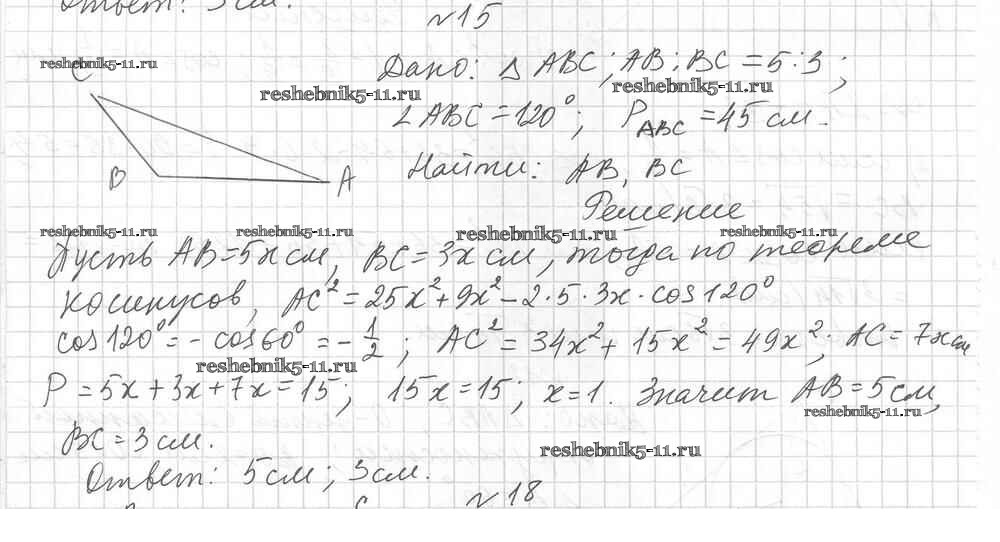 Ответ: 3 см.
№15
reshebnik5-11.ru
C
Дано: Δ ABC; AB:BC = 5:3;
reshebnik5-11.ru reshebnik5-11.ru
∠ABC = 120°; P_ABC = 45 см.
B A
Найти: AB, BC
Решение
reshebnik5-11.ru reshebnik5-11.ru reshebnik5-11.ru reshebnik5-11.ru
Пусть AB = 5x см, BC = 3x см, тогда по теореме
косинусов, AC² = 25x² + 9x² - 2·5·3x·cos 120°
cos 120° = - cos 60° = - 1/2; AC² = 34x² + 15x² = 49x²; AC = 7x см
reshebnik5-11.ru
P = 5x + 3x + 7x = 15; 15x = 15; x = 1. Значит AB = 5 см,
reshebnik5-11.ru
BC = 3 см.
reshebnik5-11.ru
Ответ: 5 см; 3 см.
№18